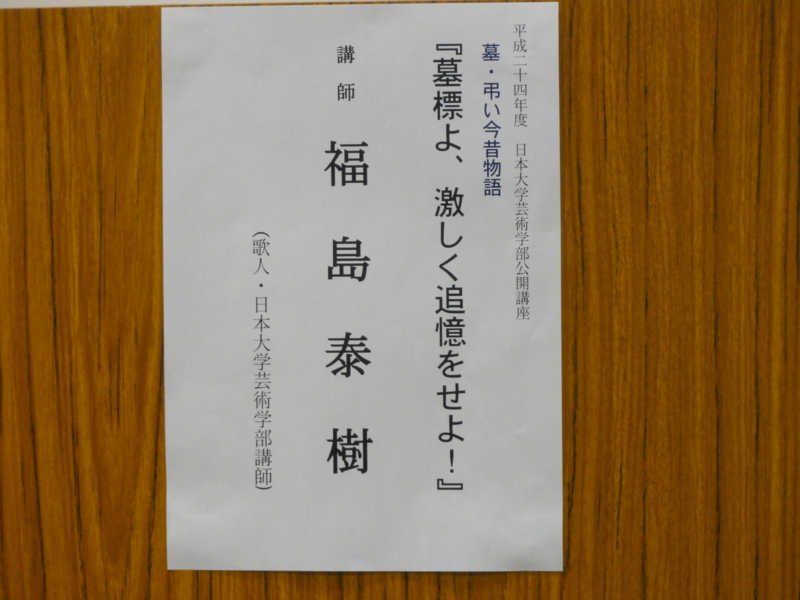 平成二十四年度　日本大学芸術学部公開講座
墓・弔い今昔物語
『墓標よ、激しく追憶をせよ！』
講師　福島泰樹
（歌人・日本大学芸術学部講師）